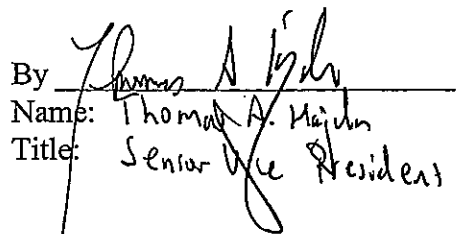 By Thomas A
Name: Thomas A.
Title: Senior Vice President